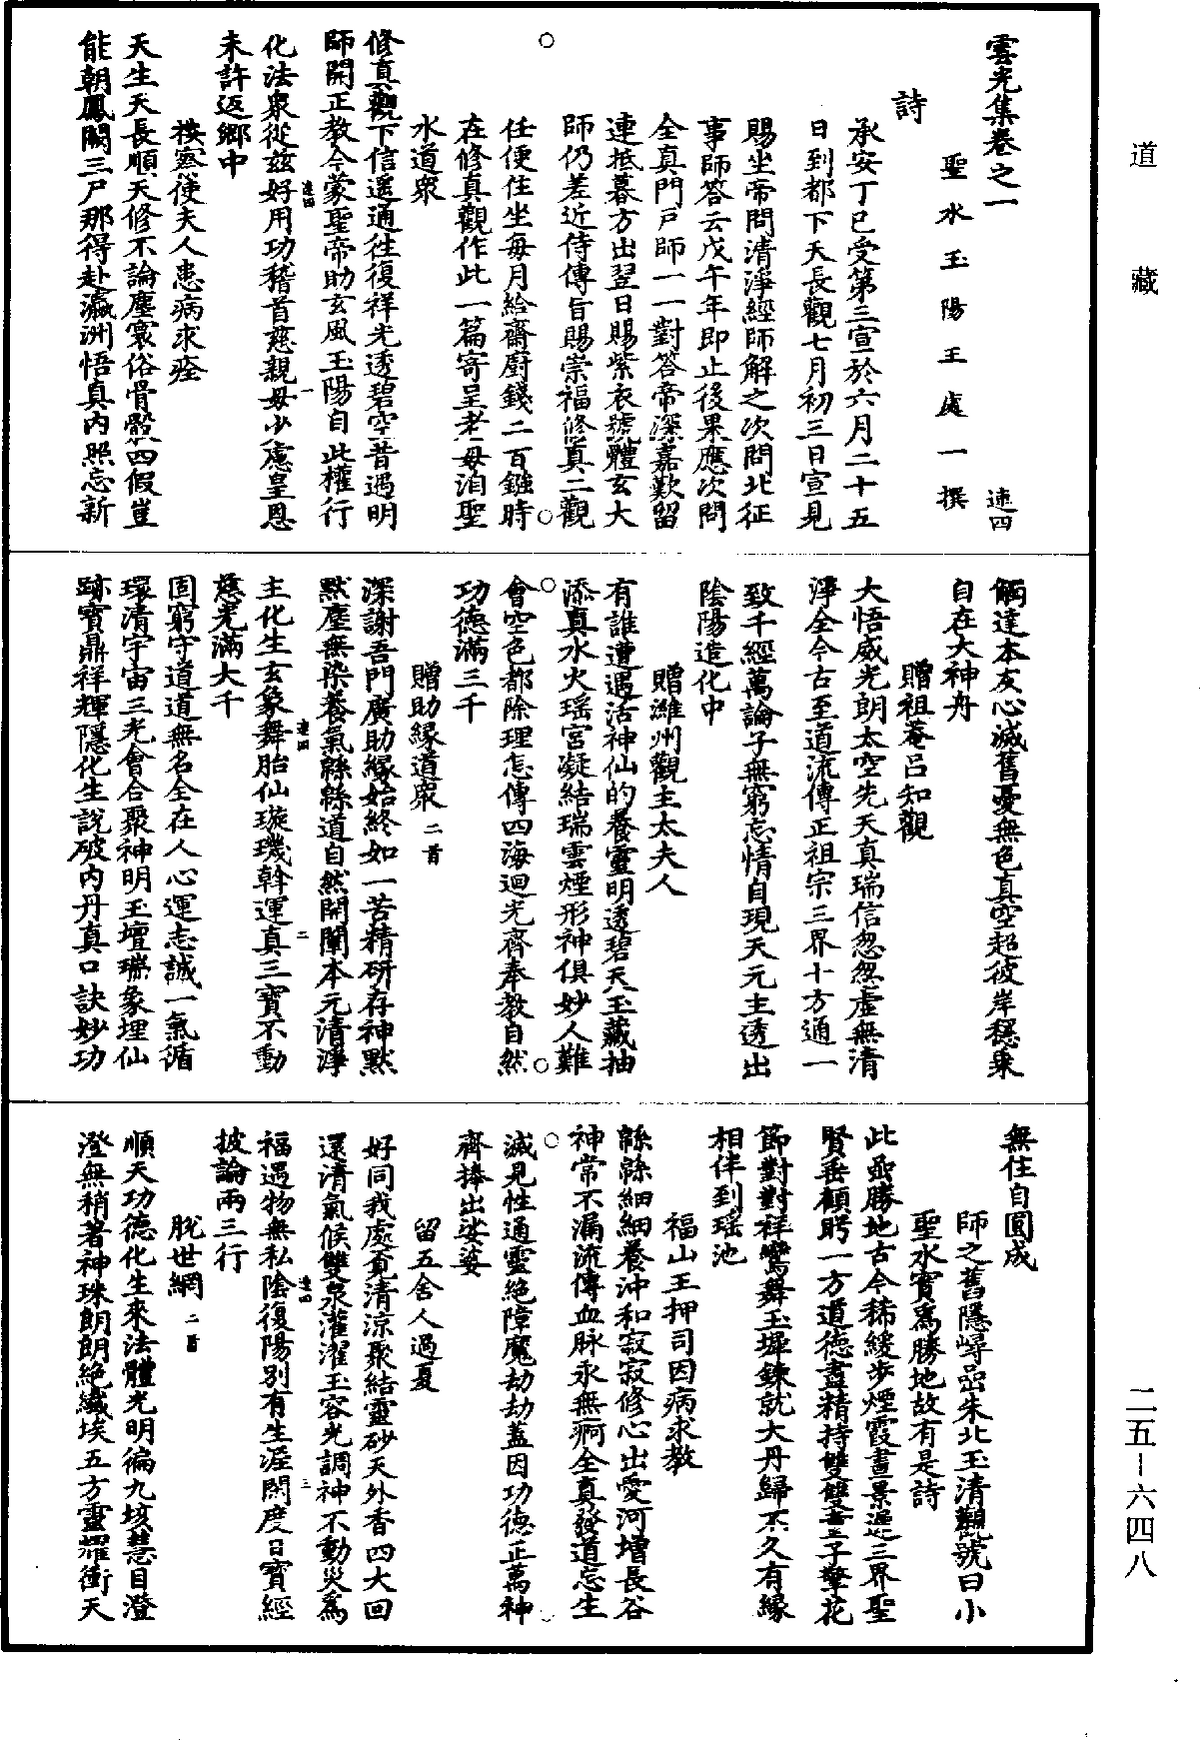 道藏
雲光集卷之一
聖水玉陽王處一撰 速四
詩
承安丁巳受第三宣於六月二十五
日到都下天長觀七月初三日宣見
賜坐帝問清淨經師解之次問北征
事師答云戊午年即止後果應次問
全真門戶師一一對答帝深嘉歎留
連抵暮方出翌日賜紫衣號體玄大
師仍差近侍傳旨賜崇福修真二觀
任便住坐每月給齋廚錢二百鏹時
在修真觀作此一篇寄呈老母洎聖
水道眾
修真觀下信遥通往復祥光透碧空昔遇明
師開正教今蒙聖帝助玄風玉陽自此權行
化法眾從兹好用功稽首慈親毋少慮皇恩
未許返鄉中
速四 一
模察使夫人患病求痊
天生天長順天修不論塵寰俗骨骰四假豈
能朝鳳闕三尸那得赴瀛洲悟真内照忘新
觸達本灰心滅舊憂無色真空超彼岸穩乘
自在大神舟
贈祖菴吕知觀
大悟威光朗太空先天真瑞信怱怱虛無清
淨全今古至道流傳正祖宗三界十方通一
致千經萬論子無窮忘情自現天元主透出
陰陽造化中
贈濰州觀主太夫人
有誰遭遇活神仙的養靈明透碧天玉藏抽
添真水火瑤宮凝結瑞雲煙形神俱妙人難
會空色都除理怎傳四海迴光齊奉教自然
功德滿三千
贈助緣道眾 二首
深謝吾門廣助緣始終如一苦精研存神默
默塵無染養氣緜緜道自然開闡本元清淨
主化生玄象舞胎仙璇璣斡運真三寶不動
慈光滿大千
速四 二
固窮守道道無名全在人心運志誠一氣循
環清宇宙三光會合聚神明玉壇瑞象埋仙
跡寶鼎祥輝隱化生說破内丹真口訣妙功
無住自圓成
師之舊隱㟳嵒朱北玉清觀號曰小
聖水實為勝地故有是詩
此喦勝地古今稀緩步煙霞晝景遲三界聖
賢垂顧眄一方道德盡精持雙雙童子擎花
節對對祥鸞舞玉墀鍊就大丹歸不久有緣
相伴到瑤池
福山王押司因病求教
緜緜細細養沖和寂寂修心出愛河增長谷
神常不漏流傳血脉永無痾全真發道忘生
滅見性通靈絕障魔劫劫蓋因功德正萬神
齊捧出娑婆
留五舍人過夏
好同我處覓清涼聚結靈砂天外香四大回
還清氣候雙泉灌濯玉容光調神不動災為
福遇物無私陰復陽別有生涯閑度日寶經
披論兩三行
速四 三
脫世網 二首
順天功德化生來法體光明徧九垓慧目澄
澄無稍著神珠朗朗絕纖埃五方靈耀衝天
二五－六四八